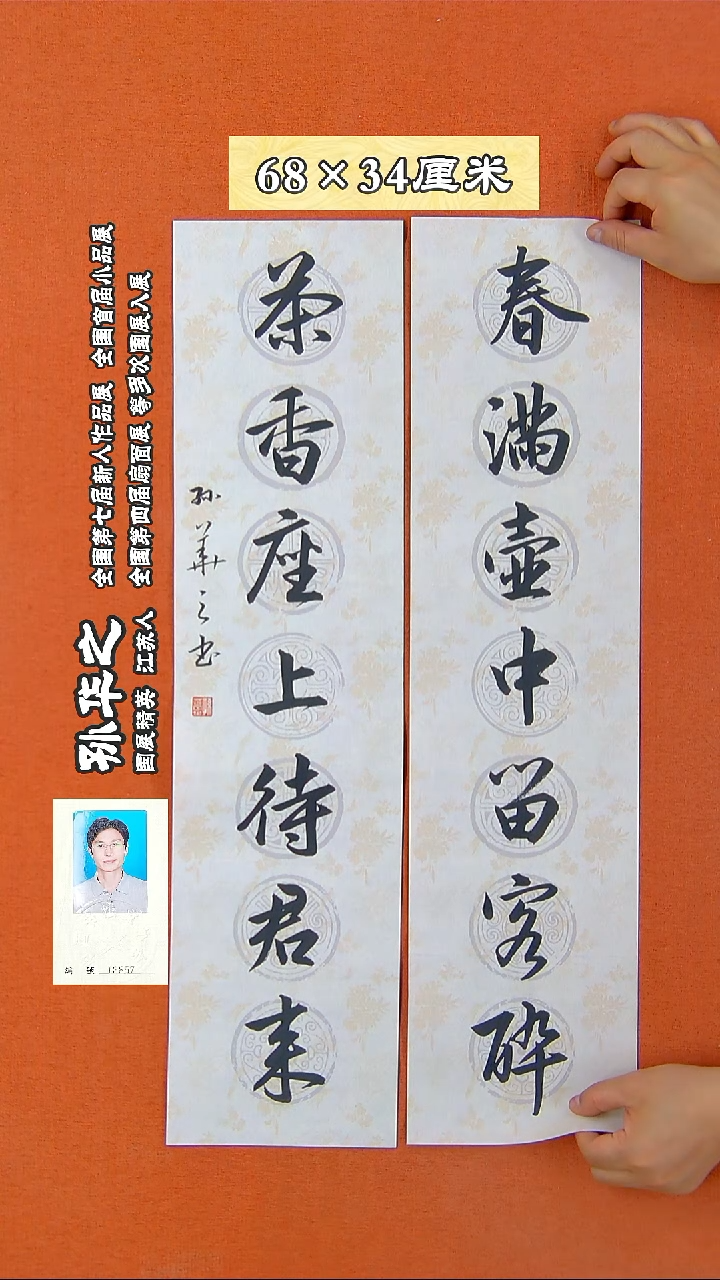 68×34厘米
春满壶中留客醉
茶香座上待君来
孙华之书
孙华之
国展精英 江苏人
全国第七届新人作品展 全国首届小品展
全国第四届扇面展 等多次国展入展
编 号